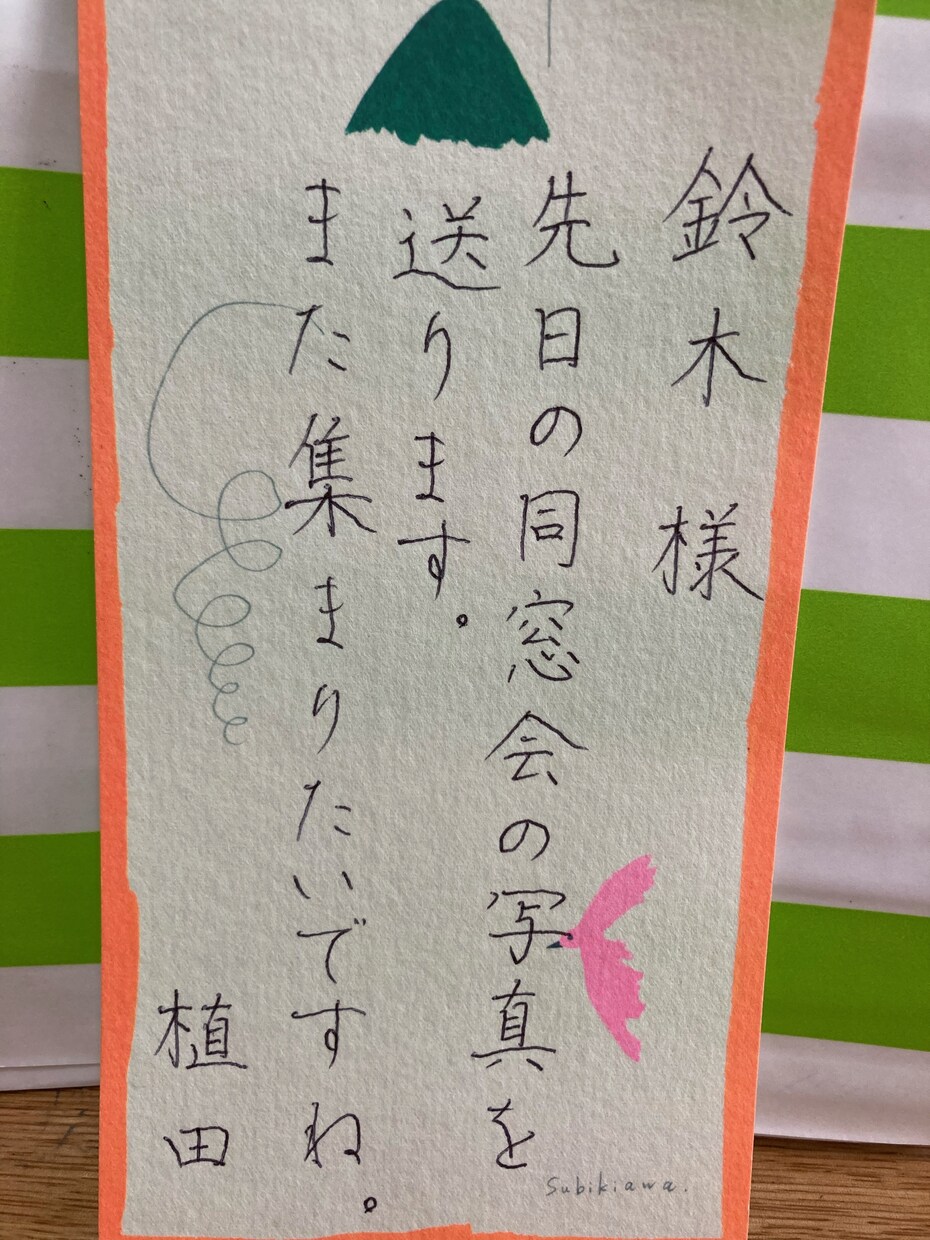 鈴木 様
先日の同窓会の写真を
送ります。
また集まりたいですね。
植田
Subikiawa.